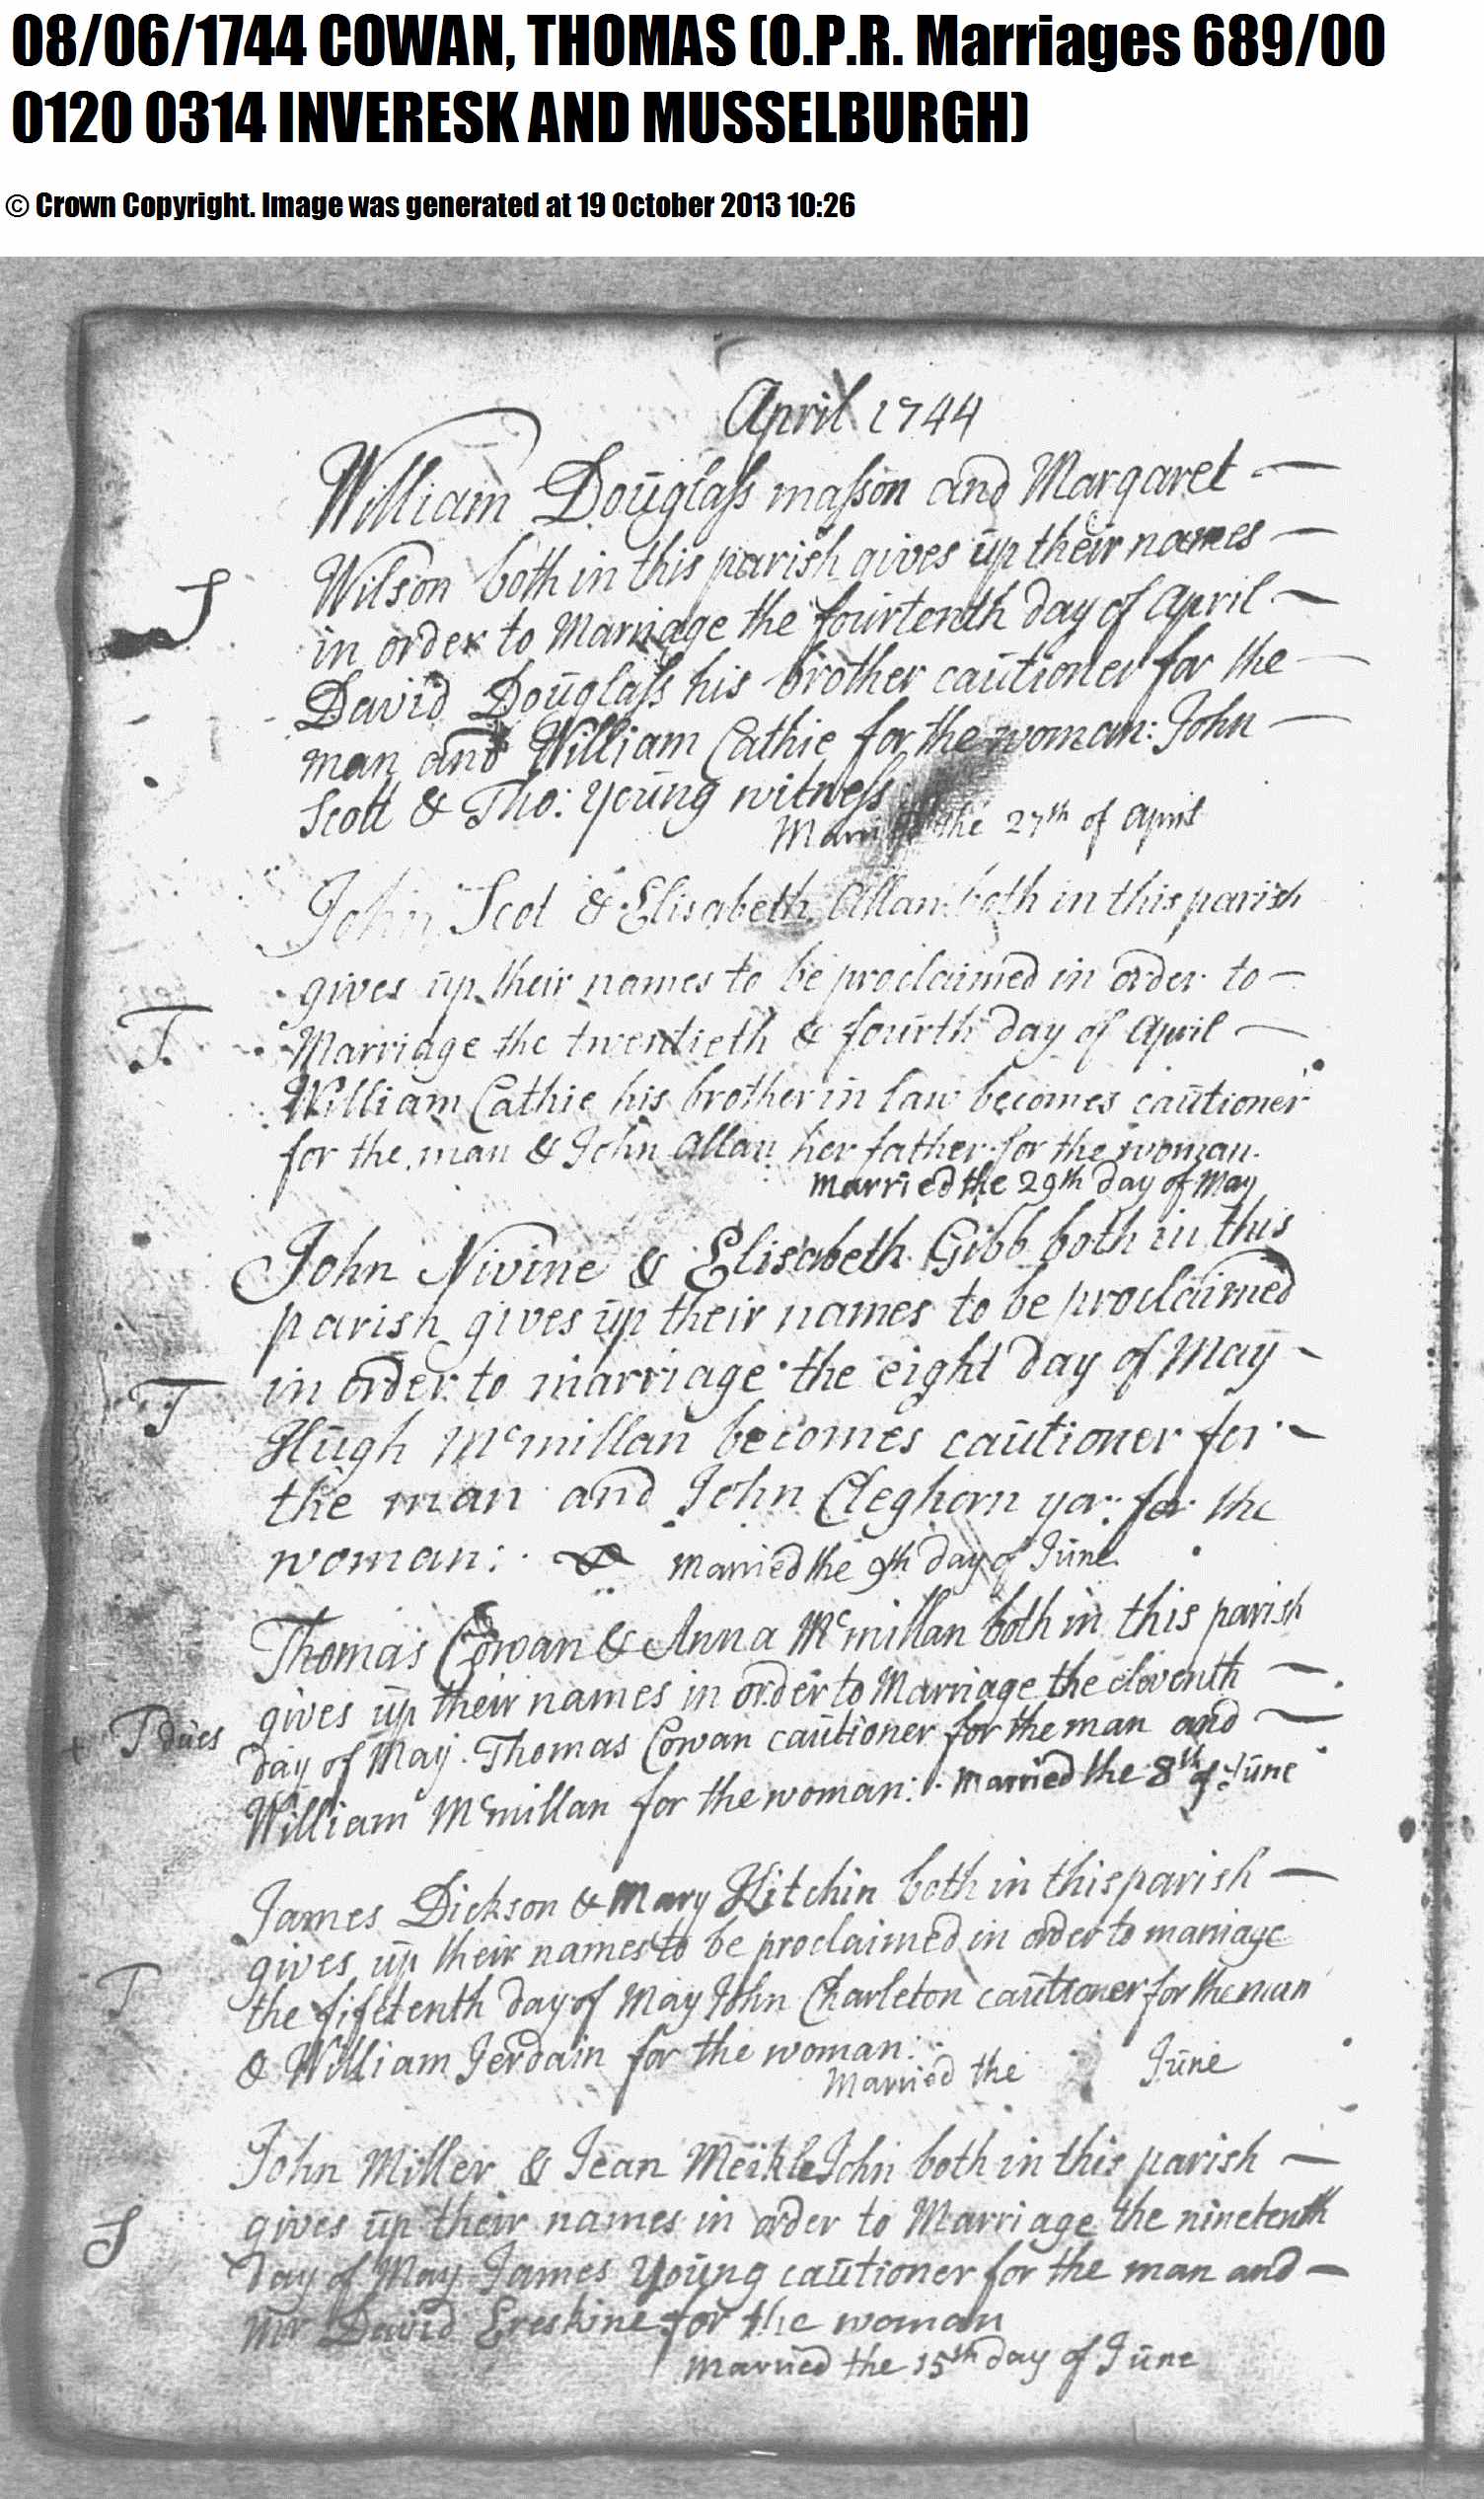 08/06/1744 COWAN, THOMAS (O.P.R. Marriages 689/00
0120 0314 INVERESK AND MUSSELBURGH)
© Crown Copyright. Image was generated at 19 October 2013 10:26
April 1744
William Douglass masson and Margaret —
Wilson both in this parish gives up their names —
in order to Marriage the fourtenth day of April —
David Douglass his brother cautioner for the —
man and William Cathie for the woman: John —
Scott & Tho: Young witness
Married the 27th of April
John Scot & Elisabeth Allan both in this parish
gives up their names to be proclaimed in order to —
T Marriage the twentieth & fourth day of April —
William Cathie his brother in law becomes cautioner
for the man & John Allan her father for the woman.
Married the 29th day of May
John Nivine & Elisabeth Gibb both in this
parish gives up their names to be proclaimed
T in order to marriage the eight day of May -
Hugh Mcmillan becomes cautioner for -
the man and John Cleghorn yor: for the
woman: Married the 9th day of June
Thomas Cowan & Anna Mcmillan both in this parish
gives up their names in order to Marriage the eleventh —
+ T dues day of May. Thomas Cowan cautioner for the man and —
William Mcmillan for the woman: Married the 8th of June
James Dickson & Mary Kitchin both in this parish —
gives up their names to be proclaimed in order to marriage
T the fifetenth day of May John Charleton cautioner for the man
& William Jerdain for the woman:
Married the June
John Miller & Jean MeikleJohn both in this parish —
gives up their names in order to Marriage the ninetenth
day of May James Young cautioner for the man and —
Mr David Ereskine for the woman
Married the 15th day of June